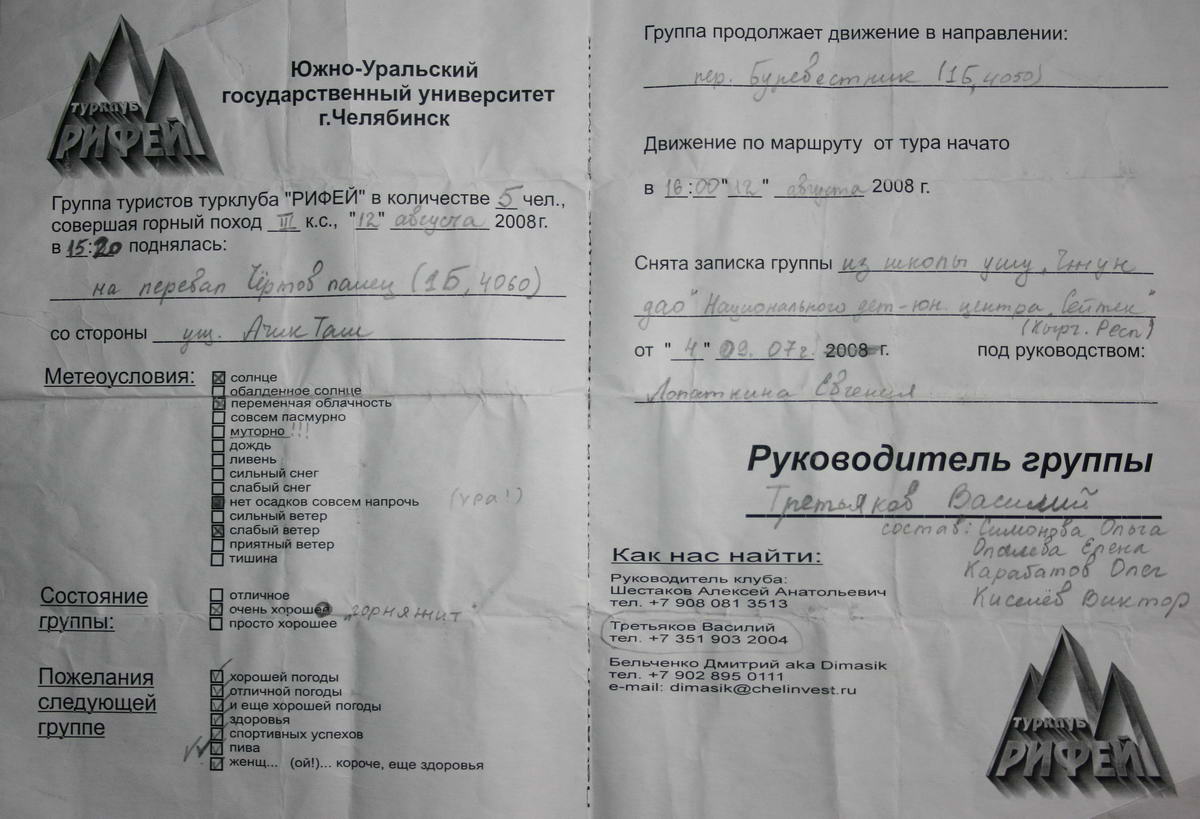 турклуб
РИФЕЙ
Южно-Уральский
государственный университет
г.Челябинск
Группа туристов турклуба "РИФЕЙ" в количестве 5 чел.,
совершая горный поход III к.с., "12" августа 2008г.
в 15:20 поднялась:
на перевал Чёртов палец (1Б, 4060)
со стороны ущ. Ачик Таш
Метеоусловия:
солнце
обалденное солнце
переменная облачность
совсем пасмурно
муторно !!!
дождь
ливень
сильный снег
слабый снег
нет осадков совсем напрочь (ура!)
сильный ветер
слабый ветер
приятный ветер
тишина
Состояние
группы:
отличное
очень хорошее "горняжит"
просто хорошее
Пожелания
следующей
группе
хорошей погоды
отличной погоды
и еще хорошей погоды
здоровья
спортивных успехов
пива
женщ... (ой!)... короче, еще здоровья
Группа продолжает движение в направлении:
пер. Буревестник (1Б, 4050)
Движение по маршруту от тура начато
в 16:00 "12" августа 2008 г.
Снята записка группы из школы ушу "Чжун
дао" Национального дет-юн. центра "Сейтек"
(Кырг. Респ)
от "4" 09.07г. 2008 г. под руководством:
Лопаткина Евгения
Руководитель группы
Третьяков Василий
состав: Симонова Ольга
Опалева Елена
Карабатов Олег
Киселёв Виктор
Как нас найти:
Руководитель клуба:
Шестаков Алексей Анатольевич
тел. +7 908 081 3513
Третьяков Василий
тел. +7 351 903 2004
Бельченко Дмитрий aka Dimasik
тел. +7 902 895 0111
e-mail: dimasik@chelinvest.ru
турклуб
РИФЕЙ